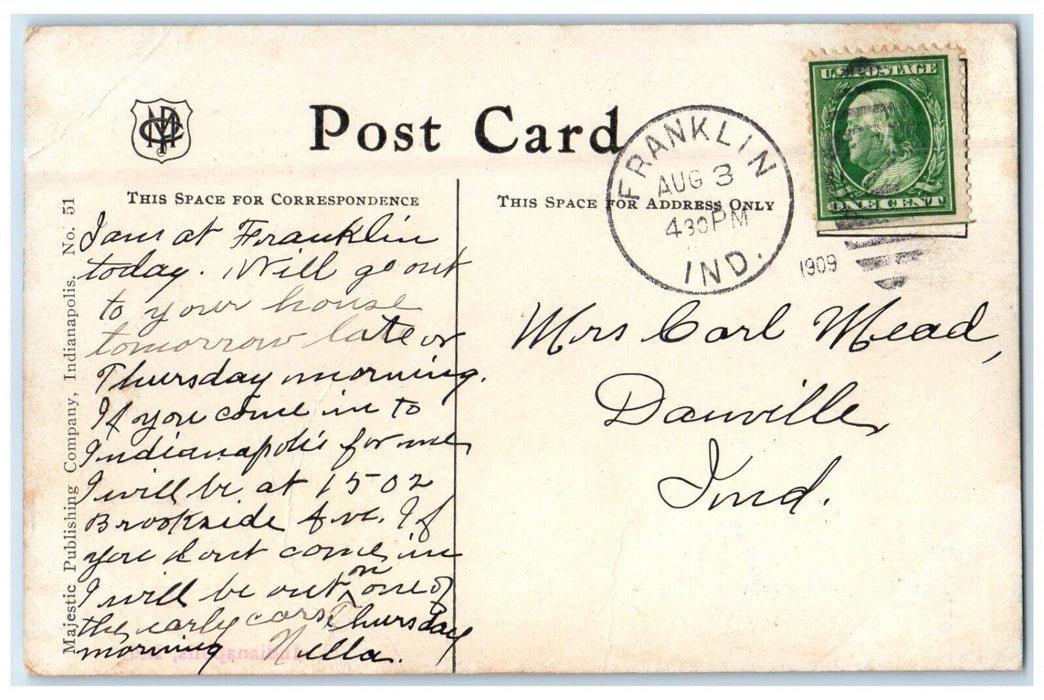 Post Card
THIS SPACE FOR CORRESPONDENCE
THIS SPACE FOR ADDRESS ONLY
U.S. POSTAGE
ONE CENT
FRANKLIN
AUG 3
430PM
IND.
1909
Majestic Publishing Company, Indianapolis. No. 51
I am at Franklin
today. Will go out
to your house
tomorrow late or
Thursday morning.
If you come in to
Indianapolis for me
I will be at 1502
Brookside Ave. If
you dont come in
I will be out on one of
the early cars Thursday
morning Nella.
Mrs Carl Mead,
Danville,
Ind.